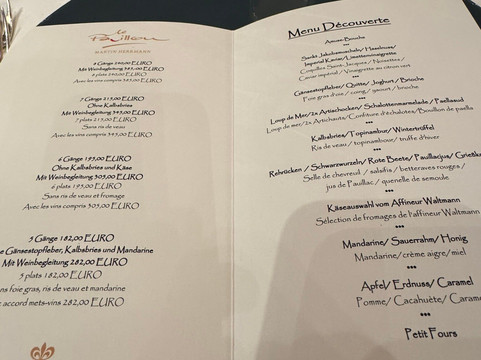 le
Pavillon
MARTIN HERRMANN
8 Gänge
Mit Weinbegleitung
8 plats
Avec les vins compris
7 Gänge 215,00 EURO
Ohne Kalbsbries
Mit Weinbegleitung 345,00 EURO
7 plats 215,00 EURO
Sans ris de veau
Avec les vins compris 345,00 EURO
6 Gänge 195,00 EURO
Ohne Kalbsbries und Käse
Mit Weinbegleitung 305,00 EURO
6 plats 195,00 EURO
Sans ris de veau et fromage
Avec les vins compris 305,00 EURO
5 Gänge 182,00 EURO
e Gänsestopfleber, Kalbsbries und Mandarine
Mit Weinbegleitung 282,00 EURO
5 plats 182,00 EURO
ns foie gras, ris de veau et mandarine
accord mets-vins 282,00 EURO
Menu Découverte
Amuse-Bouche
***
Sankt Jakobsmuscheln/ Haselnuss/
Imperial Kaviar/ Limettenvinaigrette
Coquilles Saint-Jacques / Noisettes /
Caviar impérial / Vinaigrette au citron vert
***
Gänsestopfleber/ Quitte/ Joghurt / Brioche
Foie gras d'oie / coing / yaourt / brioche
***
Loup de Mer/2x Artischocken/ Schalottenmarmelade/ Paellasud
Loup de mer/2x Artichauts/Confiture d'échalotes/Bouillon de paella
***
Kalbsbries/ Topinambur/ Wintertrüffel
Ris de veau / topinambour/ truffe d'hiver
***
Rehrücken / Schwarzwurzeln/ Rote Beete/ Pauillacjus/ Grießk
Selle de chevreuil / salsifis / betteraves rouges /
jus de Pauillac / quenelle de semoule
***
Käseauswahl vom Affineur Waltmann
Sélection de fromages de l'affineur Waltmann
***
Mandarine/ Sauerrahm/ Honig
Mandarine/ crème aigre/ miel
***
Apfel/ Erdnuss/ Caramel
Pomme/ Cacahuète/ Caramel
***
Petit Fours